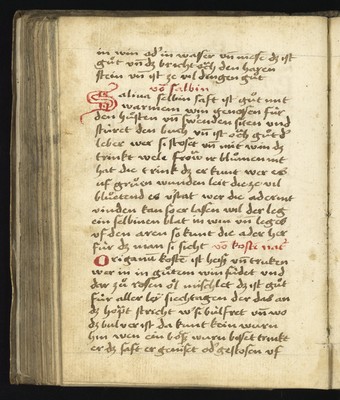 in win od' in wasser vn̄ niese dz ist
gůt vn̄ dz bricht ǒch den haren
stein vn̄ ist ze vil dingen gůt
vō salbin
Salina selbin saft ist gůt mit
warmem win genossen für
den hůsten vn̄ swenden siten vnd
stüret den buch vn̄ ist ǒch gůt d'
leber wer si stoset vn̄ mit win dz
trinkt wele frow ir blůmen nit
hat die trink dz er kunt wer es
uf grůen wunden leit die ze vil
blůtend es v'stat wer die adern nit
vinden kan so er lassen wil der leg
ein selbinen blat in win vn̄ leg es
vf den aren so kunt die ader her
für dz man si sicht vō koste
Origanū koste ist heiss vn̄ truken
wer in in gůtem win südet vnd
dar zů rosen öl mischlet dz ist gůt
für aller siechtagen der das an
dz hǒpt strichet
dz bulver ist da kunt kein wurm
hin wen ein bös wurm trinkt
er dz saft er od' gestosen vf